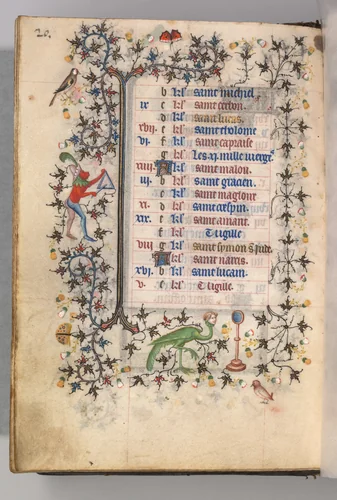 26.
b kl' saint michiel.
ix c kl' saint cerbon.
d kl' saint lucas.
xvii. e kl'
vi. f kl' saint capraise
g kl' Les .xi. mille vierge'
xiiii. A kl' saint malou.
iii. b kl' saint gracien.
c kl' saint magloire
xi. d kl' saint crespin.
xix. e kl' saint amant.
f kl' vigille
viii g kl' saint symon s' iude.
A kl' saint narcis.
xvi. b kl' saint lucain.
v. c kl' vigille.